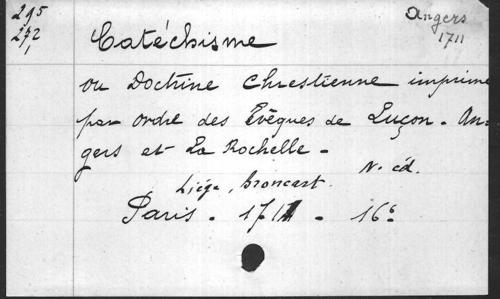 295
272
1
Angers
1711
Catéchisme
ou Doctrine Chrestienne imprimé
par ordre des Evêques de Luçon - An-
gers et La Rochelle -
N. éd.
Liége, Broncart.
Paris - 1711 - 16º